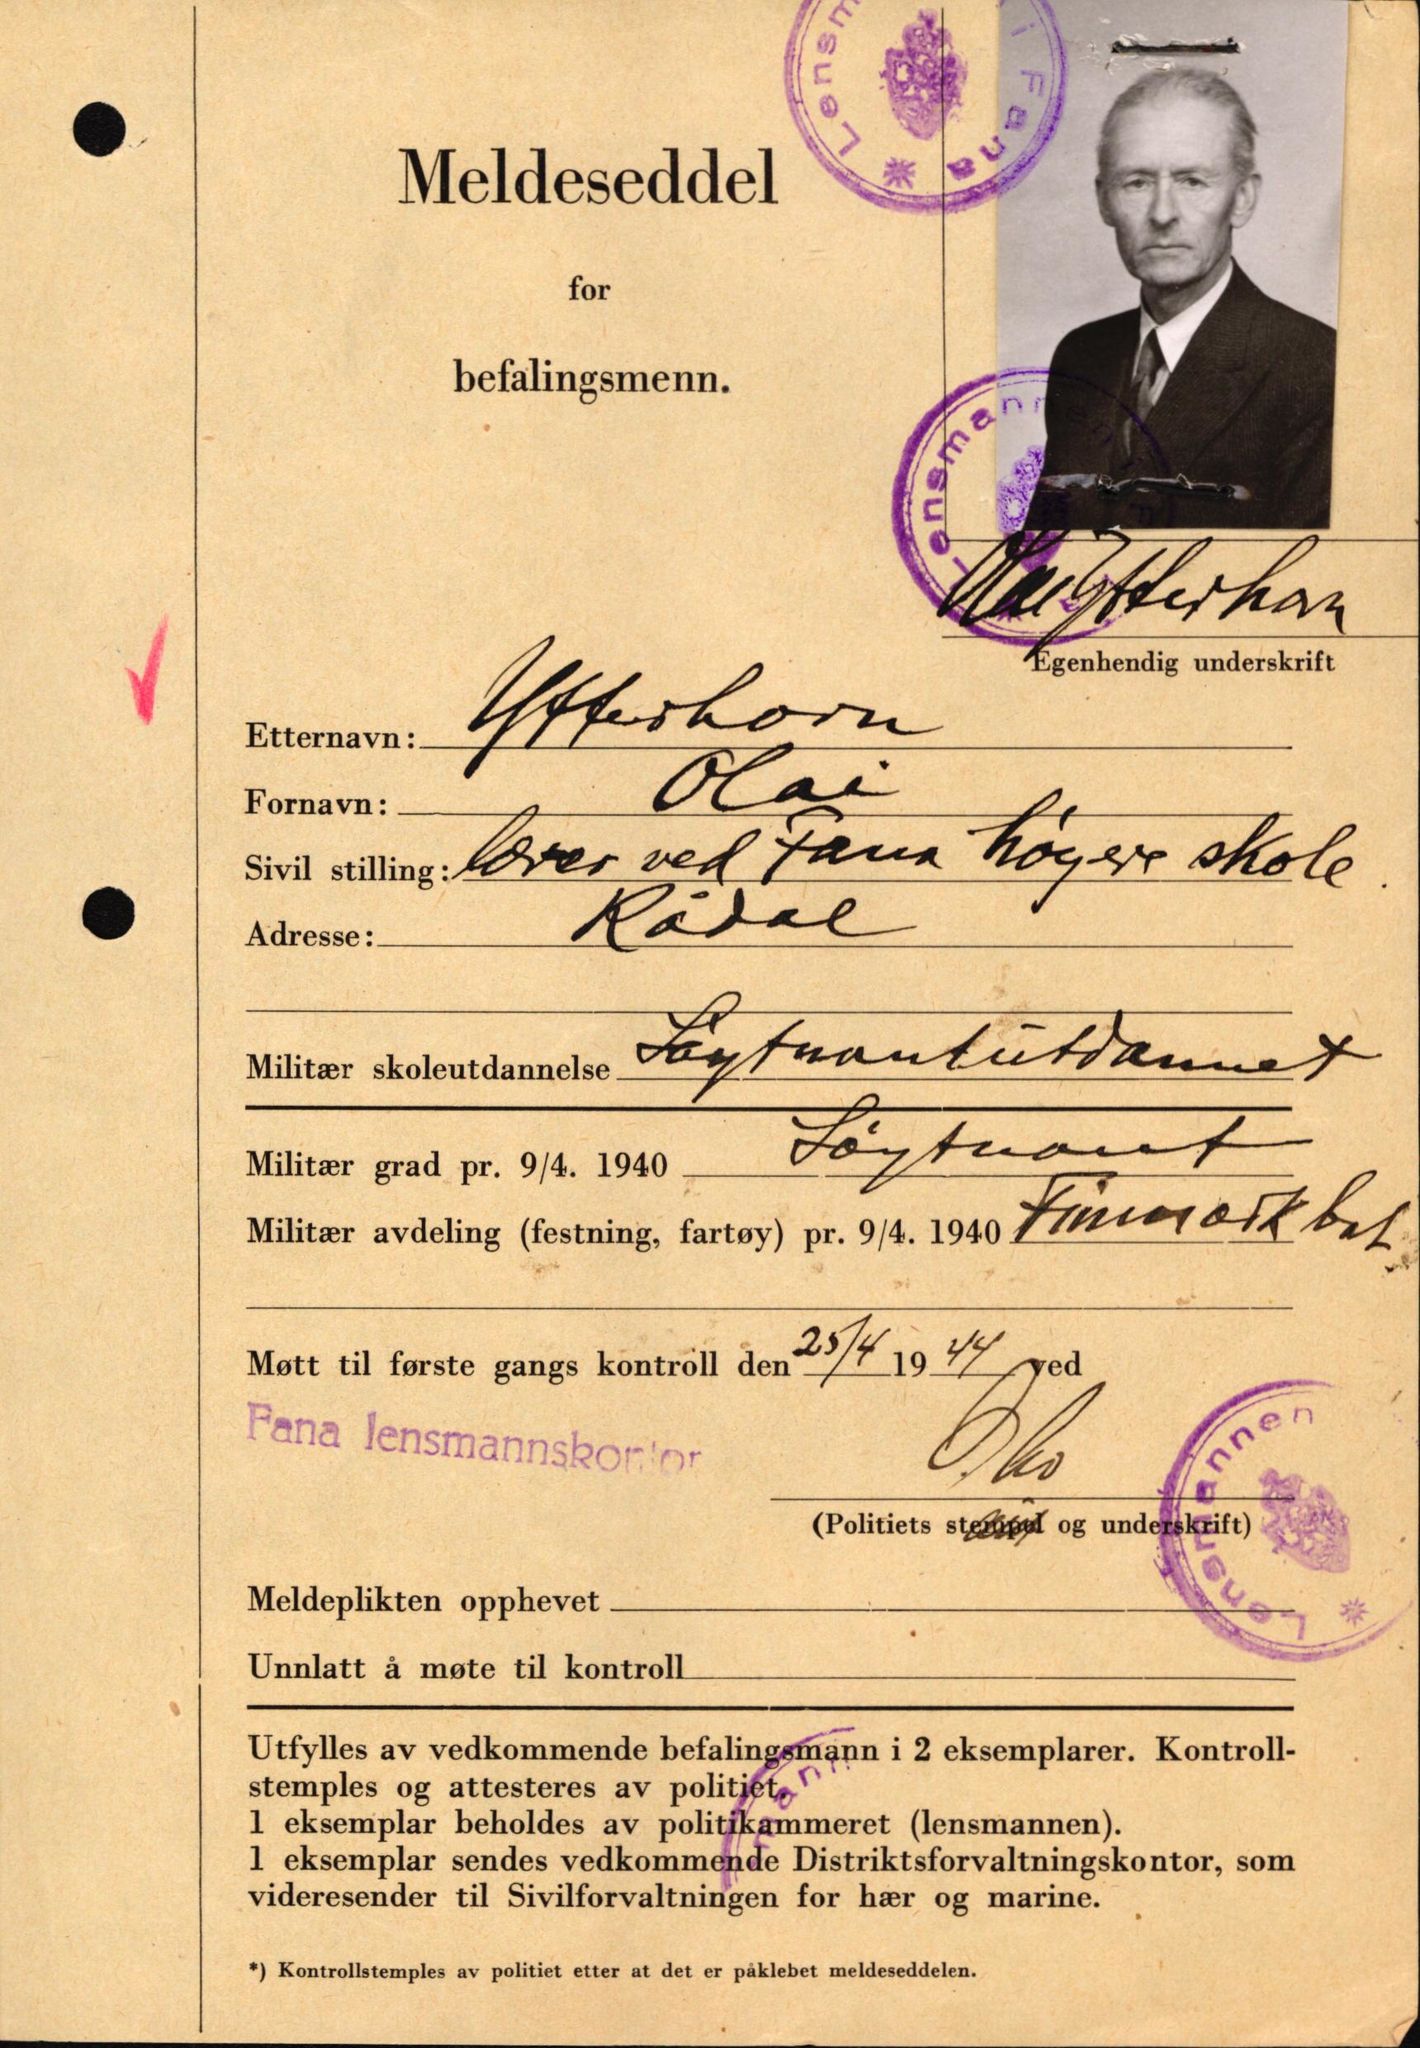 Lensm i Fana
Meldeseddel
for
befalingsmenn.
Lensmannen
Olai Ytterhorn
Egenhendig underskrift
Etternavn: Ytterhorn
Fornavn: Olai
Sivil stilling: lærer ved Fana høyere skole.
Adresse: Rådal
Militær skoleutdannelse Løytnantutdannet
Militær grad pr. 9/4. 1940 Løytnant
Militær avdeling (festning, fartøy) pr. 9/4. 1940 Finmark bat.
Møtt til første gangs kontroll den 25/4 1944 ved
Fana lensmannskontor
(Politiets stempel og underskrift)
Lensmannen
Meldeplikten opphevet
Unnlatt å møte til kontroll
Utfylles av vedkommende befalingsmann i 2 eksemplarer. Kontroll-
stemples og attesteres av politiet.
1 eksemplar beholdes av politikammeret (lensmannen).
1 eksemplar sendes vedkommende Distriktsforvaltningskontor, som
videresender til Sivilforvaltningen for hær og marine.
mann
*) Kontrollstemples av politiet etter at det er påklebet meldeseddelen.